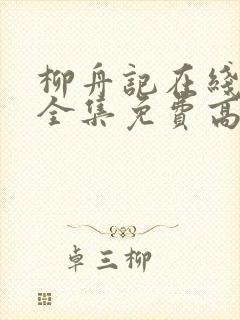 柳舟記在綫
全集免費高
卓三柳